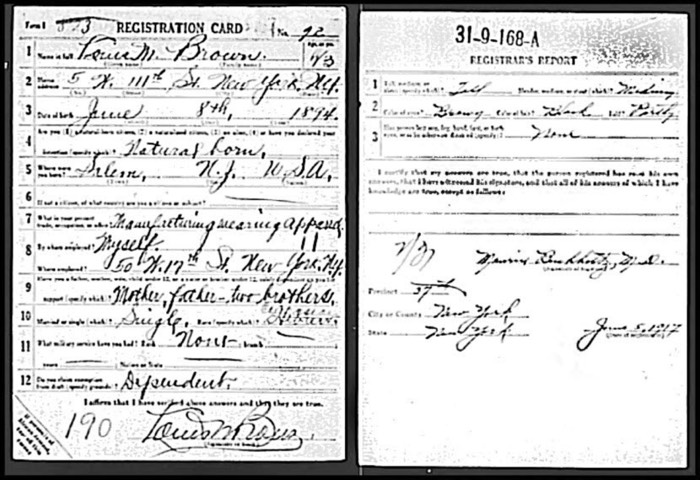 Form 1 REGISTRATION CARD No. 92
1 Name in full Louis M. Brown. Age, in yrs. 23
2 Home address 5 W. 111th St. New York, N.Y.
3 Date of birth June 8th, 1894.
4 Are you (1) a natural-born citizen, (2) a naturalized citizen, (3) an alien, (4) or have you declared your
intention (specify which)? Natural born,
5 Where were you born? Salem, N.J. U.S.A.
6 If not a citizen, of what country are you a citizen or subject?
7 What is your present trade, occupation, or office? Manufacturing wearing Apparel
8 By whom employed? Myself
Where employed? 50 W. 17th St. New York, N.Y.
9 Have you a father, mother, wife, child under 12, or a sister or brother under 12, solely dependent on you for
support (specify which)? Mother, father - two brothers.
10 Married or single (which)? Single, Race (specify which)?
11 What military service have you had? Rank None branch
years Nation or State
12 Do you claim exemption from draft (specify grounds)? Dependent.
I affirm that I have verified above answers and that they are true.
190 Louis M Brown.
31-9-168-A
REGISTRAR'S REPORT
1 Tall, medium, or short (specify which)? Tall Slender, medium, or stout (which)? Medium
2 Color of eyes? Brown Color of hair? Black Bald? Partly
3 Has person lost arm, leg, hand, foot, or both
or is he otherwise disabled (specify)? None
I certify that my answers are true, that the person registered has read his own
answers, that I have witnessed his signature, and that all of his answers of which I have
knowledge are true, except as follows:
Precinct 37th
City or County New York
State New York June 5, 1917